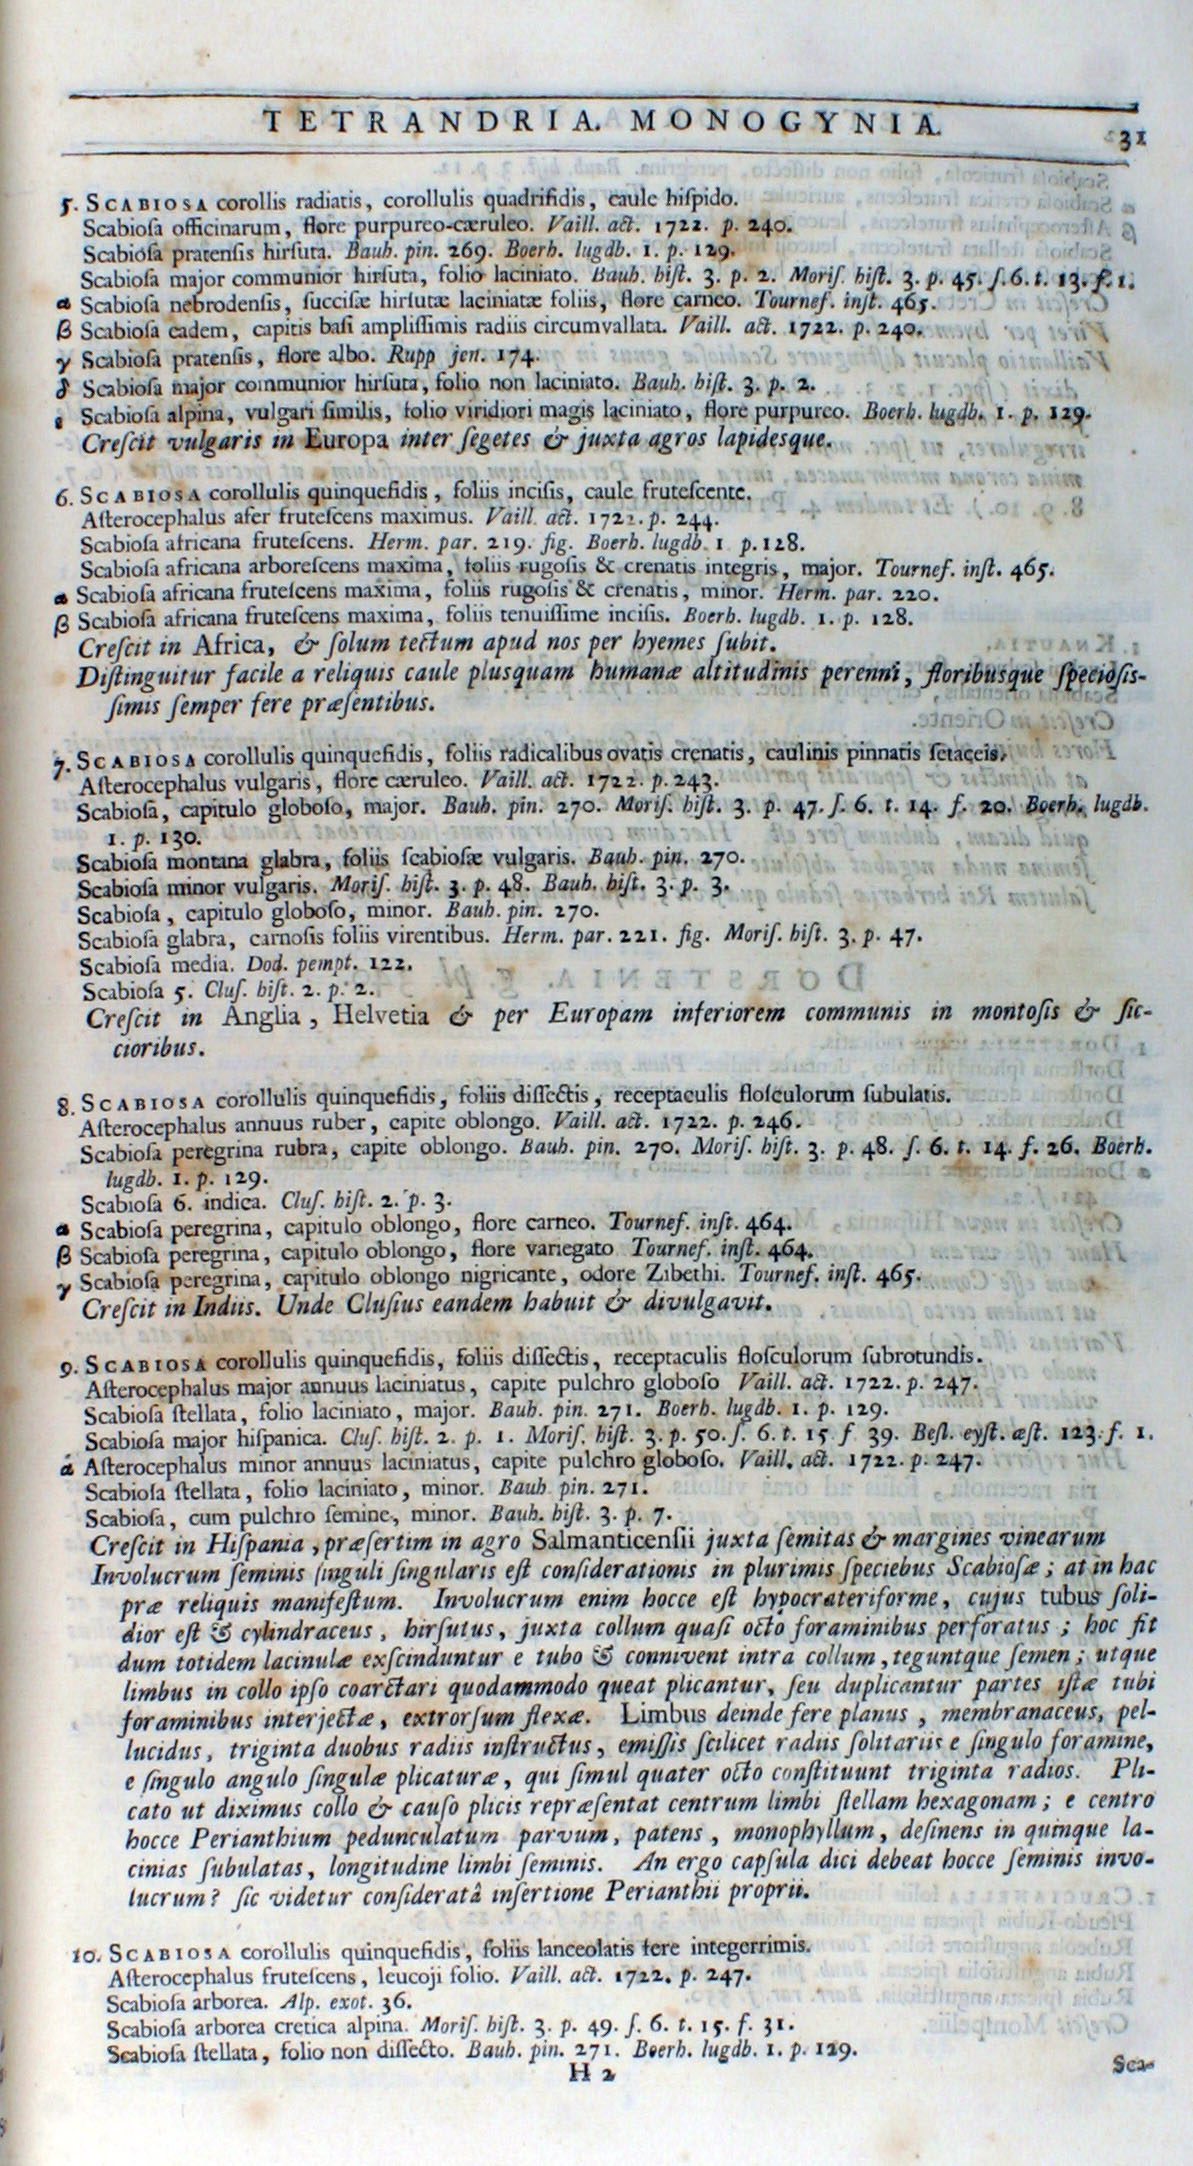 TETRANDRIA. MONOGYNIA. 31
5. SCABIOSA corollis radiatis, corollulis quadrifidis, caule hiſpido.
Scabioſa officinarum, flore purpureo-cæruleo. Vaill. act. 1722. p. 240.
Scabioſa pratenſis hirſuta. Bauh. pin. 269. Boerh. lugdb. 1. p. 129.
Scabioſa major communior hirſuta, folio laciniato. Bauh. hiſt. 3. p. 2. Moriſ. hiſt. 3. p. 45. ſ. 6. t. 13. f. 1.
α Scabioſa nebrodenſis, ſucciſæ hirſutæ laciniatæ foliis, flore carneo. Tournef. inſt. 465.
β Scabioſa eadem, capitis baſi ampliſſimis radiis circumvallata. Vaill. act. 1722. p. 240.
γ Scabioſa pratenſis, flore albo. Rupp jen. 174.
δ Scabioſa major communior hirſuta, folio non laciniato. Bauh. hiſt. 3. p. 2.
ε Scabioſa alpina, vulgari ſimilis, folio viridiori magis laciniato, flore purpureo. Boerh. lugdb. 1. p. 129.
Creſcit vulgaris in Europa inter ſegetes & juxta agros lapidesque.
6. SCABIOSA corollulis quinquefidis, foliis inciſis, caule fruteſcente.
Aſterocephalus afer fruteſcens maximus. Vaill. act. 1722. p. 244.
Scabioſa africana fruteſcens. Herm. par. 219. fig. Boerh. lugdb. 1 p. 128.
Scabioſa africana arboreſcens maxima, foliis rugoſis & crenatis integris, major. Tournef. inſt. 465.
α Scabioſa africana fruteſcens maxima, foliis rugoſis & crenatis, minor. Herm. par. 220.
β Scabioſa africana fruteſcens maxima, foliis tenuiſſime inciſis. Boerh. lugdb. 1. p. 128.
Creſcit in Africa, & ſolum tectum apud nos per hyemes ſubit.
Diſtinguitur facile a reliquis caule plusquam humanæ altitudinis perenni, floribusque ſpecioſis-
ſimis ſemper fere præſentibus.
7. SCABIOSA corollulis quinquefidis, foliis radicalibus ovatis crenatis, caulinis pinnatis ſetaceis.
Aſterocephalus vulgaris, flore cæruleo. Vaill. act. 1722. p. 243.
Scabioſa, capitulo globoſo, major. Bauh. pin. 270. Moriſ. hiſt. 3. p. 47. ſ. 6. t. 14. f. 20. Boerh. lugdb.
1. p. 130.
Scabioſa montana glabra, foliis ſcabioſæ vulgaris. Bauh. pin. 270.
Scabioſa minor vulgaris. Moriſ. hiſt. 3. p. 48. Bauh. hiſt. 3. p. 3.
Scabioſa, capitulo globoſo, minor. Bauh. pin. 270.
Scabioſa glabra, carnoſis foliis virentibus. Herm. par. 221. fig. Moriſ. hiſt. 3. p. 47.
Scabioſa media. Dod. pempt. 122.
Scabioſa 5. Cluſ. hiſt. 2. p. 2.
Creſcit in Anglia, Helvetia & per Europam inferiorem communis in montoſis & ſic-
cioribus.
8. SCABIOSA corollulis quinquefidis, foliis diſſectis, receptaculis floſculorum ſubulatis.
Aſterocephalus annuus ruber, capite oblongo. Vaill. act. 1722. p. 246.
Scabioſa peregrina rubra, capite oblongo. Bauh. pin. 270. Moriſ. hiſt. 3. p. 48. ſ. 6. t. 14. f. 26. Boerh.
lugdb. 1. p. 129.
Scabioſa 6. indica. Cluſ. hiſt. 2. p. 3.
α Scabioſa peregrina, capitulo oblongo, flore carneo. Tournef. inſt. 464.
β Scabioſa peregrina, capitulo oblongo, flore variegato Tournef. inſt. 464.
γ Scabioſa peregrina, capitulo oblongo nigricante, odore Zibethi. Tournef. inſt. 465.
Creſcit in Indiis. Unde Cluſius eandem habuit & divulgavit.
9. SCABIOSA corollulis quinquefidis, foliis diſſectis, receptaculis floſculorum ſubrotundis.
Aſterocephalus major annuus laciniatus, capite pulchro globoſo Vaill. act. 1722. p. 247.
Scabioſa ſtellata, folio laciniato, major. Bauh. pin. 271. Boerh. lugdb. 1. p. 129.
Scabioſa major hiſpanica. Cluſ. hiſt. 2. p. 1. Moriſ. hiſt. 3. p. 50. ſ. 6. t. 15 f 39. Beſl. eyſt. æſt. 123. f. 1.
α Aſterocephalus minor annuus laciniatus, capite pulchro globoſo. Vaill. act. 1722. p. 247.
Scabioſa ſtellata, folio laciniato, minor. Bauh pin. 271.
Scabioſa, cum pulchro ſemine, minor. Bauh. hiſt. 3. p. 7.
Creſcit in Hiſpania, præſertim in agro Salmanticenſii juxta ſemitas & margines vinearum
Involucrum ſeminis ſinguli ſingularis eſt conſiderationis in plurimis ſpeciebus Scabioſæ; at in hac
præ reliquis manifeſtum. Involucrum enim hocce eſt hypocrateriforme, cujus tubus ſoli-
dior eſt & cylindraceus, hirſutus, juxta collum quaſi octo foraminibus perforatus; hoc fit
dum totidem lacinulæ exſcinduntur e tubo & connivent intra collum, teguntque ſemen; utque
limbus in collo ipſo coarctari quodammodo queat plicantur, ſeu duplicantur partes iſtæ tubi
foraminibus interjectæ, extrorſum flexæ. Limbus deinde fere planus, membranaceus, pel-
lucidus, triginta duobus radiis inſtructus, emiſſis ſcilicet radiis ſolitariis e ſingulo foramine,
e ſingulo angulo ſingulæ plicaturæ, qui ſimul quater octo conſtituunt triginta radios. Pli-
cato ut diximus collo & cauſo plicis repræſentat centrum limbi ſtellam hexagonam; e centro
hocce Perianthium pedunculatum parvum, patens, monophyllum, deſinens in quinque la-
cinias ſubulatas, longitudine limbi ſeminis. An ergo capſula dici debeat hocce ſeminis invo-
lucrum? ſic videtur conſideratâ inſertione Perianthii proprii.
10. SCABIOSA corollulis quinquefidis, foliis lanceolatis fere integerrimis.
Aſterocephalus fruteſcens, leucoji folio. Vaill. act. 1722. p. 247.
Scabioſa arborea. Alp. exot. 36.
Scabioſa arborea cretica alpina. Moriſ. hiſt. 3. p. 49. ſ. 6. t. 15. f. 31.
Scabioſa ſtellata, folio non diſſecto. Bauh. pin. 271. Boerh. lugdb. 1. p. 129.
H 2 Sca-